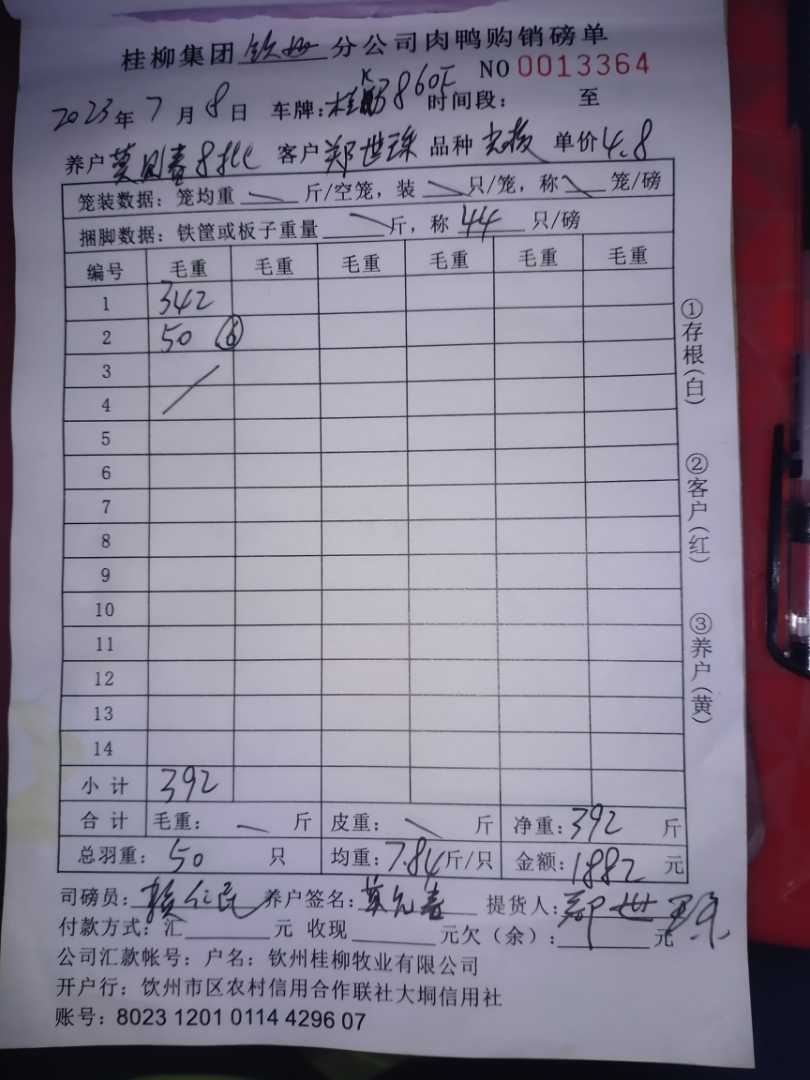 桂柳集团钦州分公司肉鸭购销磅单
NO 0013364
2023年7月8日 车牌:桂K3860F 时间段: 至
养户 8批 客户 郑世珠 品种 单价4.8
笼装数据:笼均重 斤/空笼,装 只/笼,称 笼/磅
捆脚数据:铁筐或板子重量 斤,称 44 只/磅
编号 毛重 毛重 毛重 毛重 毛重 毛重
1 342
2 50 ⑥
3
4
5
6
7
8
9
10
11
12
13
14
小计 392
合计 毛重: 斤 皮重: 斤 净重:392 斤
总羽重:50 只 均重:7.84斤/只 金额:1882元
①存根(白)
②客户(红)
③养户(黄)
司磅员: 养户签名: 提货人:郑世珠
付款方式:汇 元 收现 元欠(余): 元
公司汇款帐号:户名:钦州桂柳牧业有限公司
开户行:饮州市区农村信用合作联社大垌信用社
账号:8023 1201 0114 4296 07